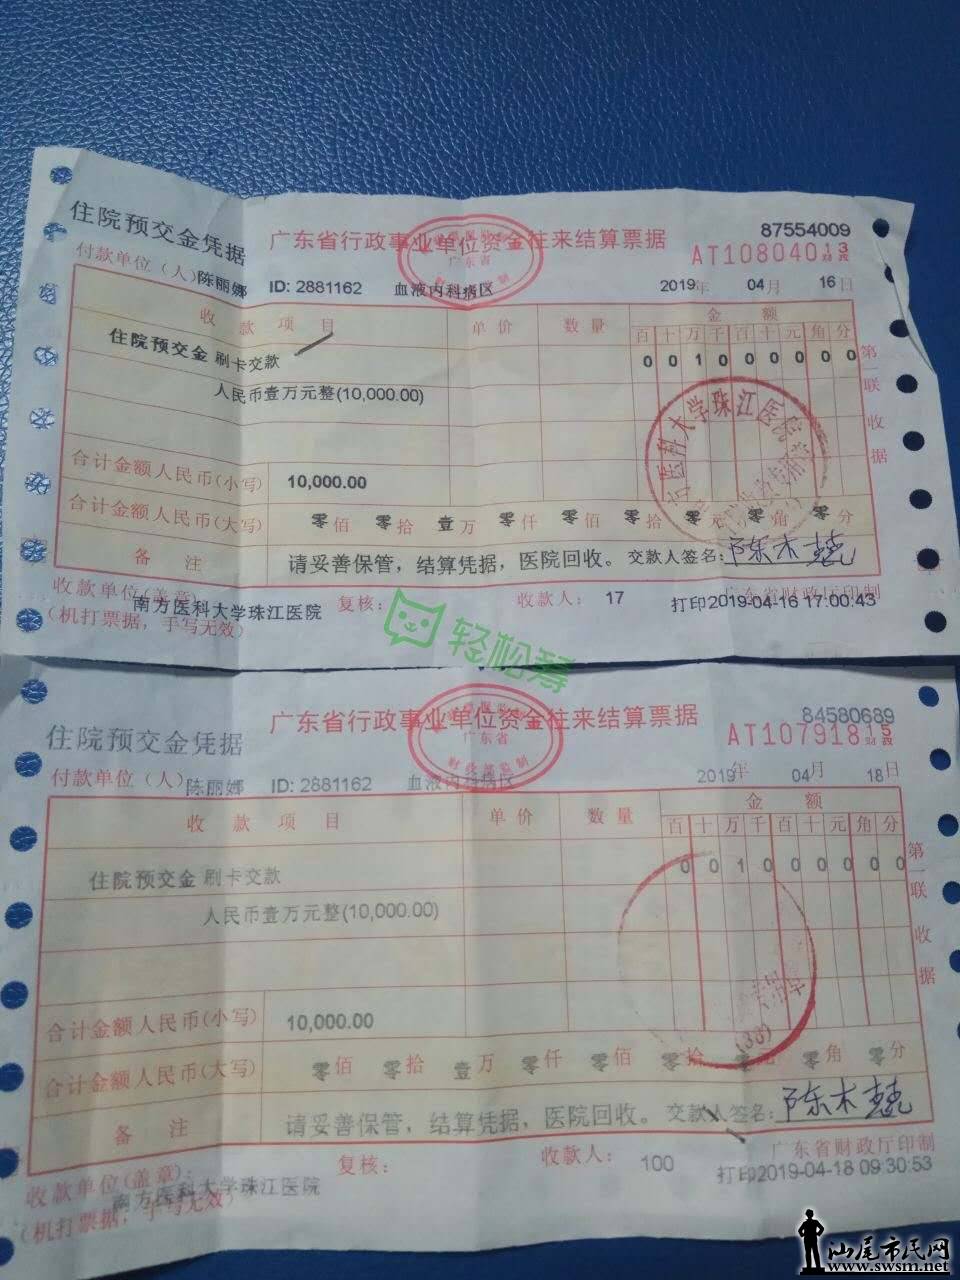 87554009
住院预交金凭据
广东省行政事业单位资金往来结算票据
AT10804013
财政
广东省
付款单位(人)陈丽娜 ID: 2881162 血液内科病区 2019年 04月 16日
收款项目 单价 数量 金额
百 十 万 千 百 十 元 角 分
住院预交金 刷卡交款 0 0 1 0 0 0 0 0 0
人民币壹万元整(10,000.00)
第一联 收据
南方医科大学珠江医院
合计金额人民币(小写) 10,000.00
合计金额人民币(大写) 零佰 零拾 壹万 零仟 零佰 零拾 零元 零角 零分
备注 请妥善保管，结算凭据，医院回收。 交款人签名:
收款单位(盖章): 南方医科大学珠江医院 复核: 收款人: 17 广东省财政厅印制
(机打票据，手写无效) 打印2019-04-16 17:00:43
轻松筹
84580689
住院预交金凭据
广东省行政事业单位资金往来结算票据
AT10791815
财政
广东省
财政部监制
付款单位(人)陈丽娜 ID: 2881162 血液内科病区 2019年 04月 18日
收款项目 单价 数量 金额
百 十 万 千 百 十 元 角 分
住院预交金 刷卡交款 0 0 1 0 0 0 0 0 0
人民币壹万元整(10,000.00)
第一联 收据
(38)
合计金额人民币(小写) 10,000.00
合计金额人民币(大写) 零佰 零拾 壹万 零仟 零佰 零拾 零元 零角 零分
备注 请妥善保管，结算凭据，医院回收。 交款人签名:
收款单位(盖章): 南方医科大学珠江医院 复核: 收款人: 100 广东省财政厅印制
(机打票据，手写无效) 打印2019-04-18 09:30:53
汕尾市民网
www.swsm.net